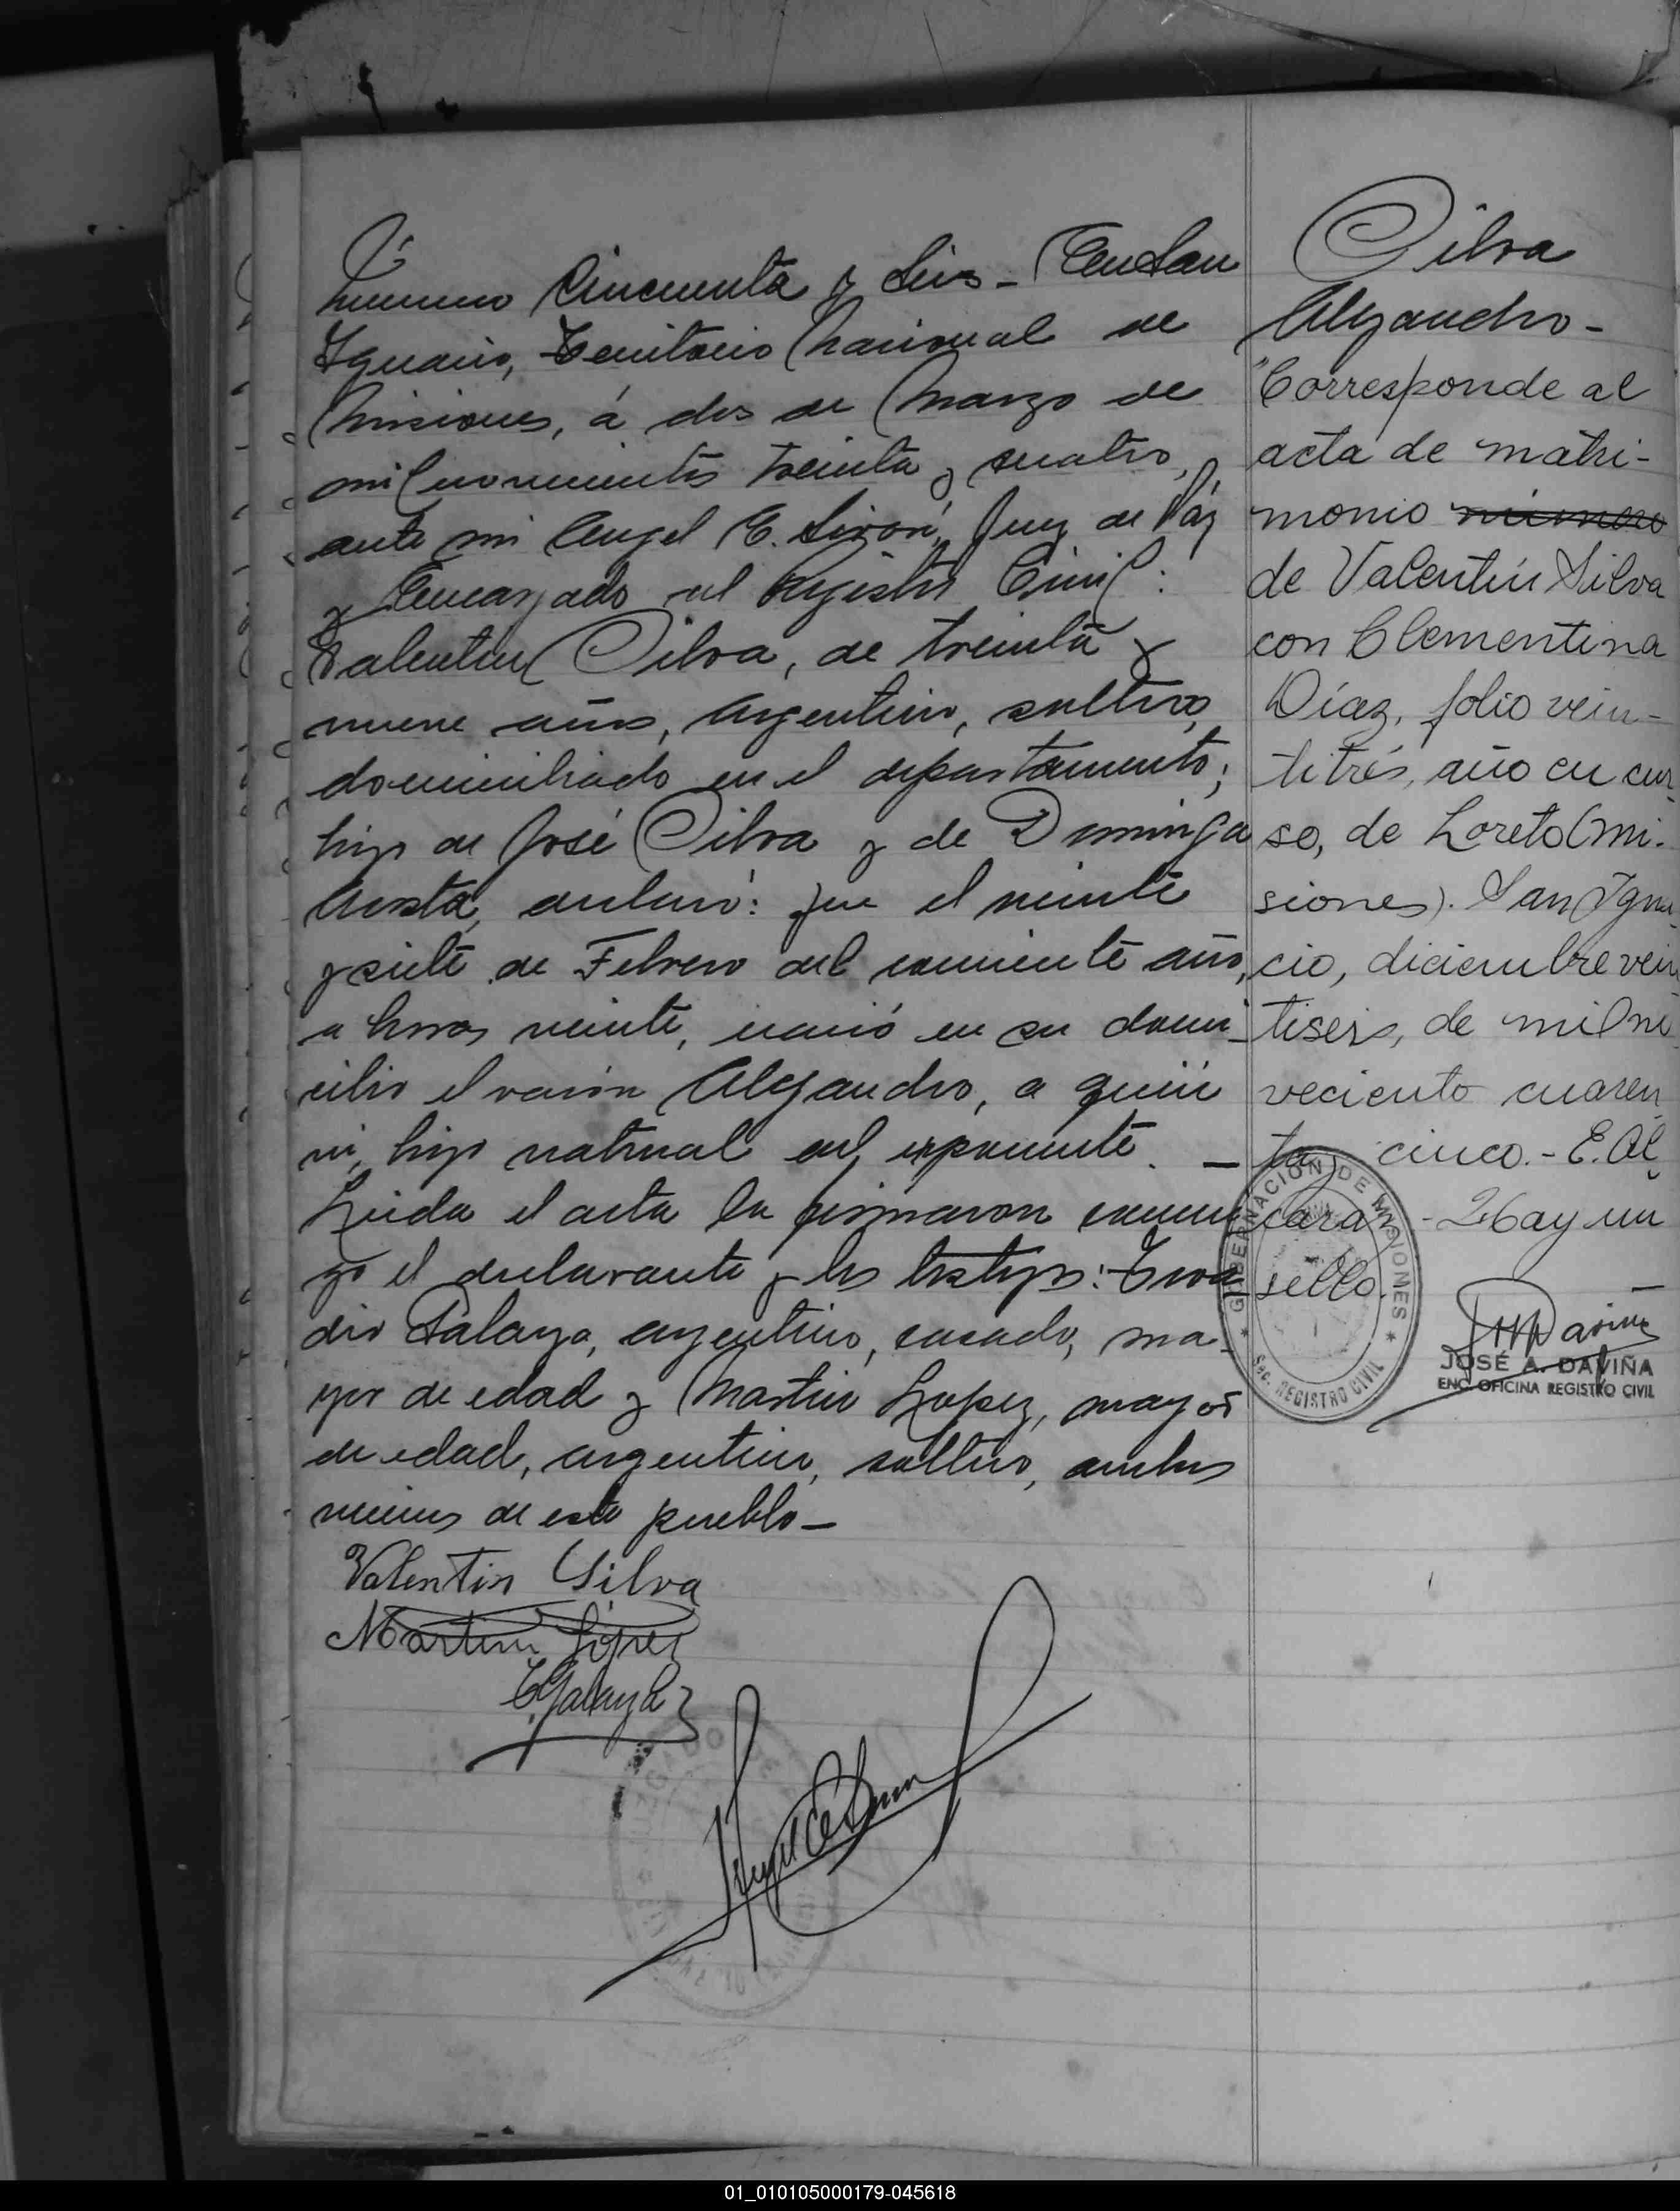 Número Cincuenta y Seis - En San
Ignacio, Territorio Nacional de
Misiones, á dos de Marzo de
mil novecientos treinta y cuatro,
ante mi Angel E. Juez de Páz
y Encargado del Registro Civil:
Valentin Silva, de treinta y
nueve años, Argentino, soltero,
domiciliado en el departamento;
hijo de José Silva y de Dominga
Acosta, declaró: que el veinte
y siete de Febrero del corriente año,
a horas veinte, nació en su domi-
cilio el varón Alejandro, a quien
vi, hijo natural del exponente. -
Leida el acta la firmaron conmi
go el declarante y los testigos:
Galarza, argentino, casado, ma-
yor de edad y Martin Lopez, mayor
de edad, argentino, soltero, ambos
vecinos de este pueblo -
Valentin Silva
Martin López
Silva
Alejandro -
"Corresponde al
acta de matri-
monio número
de Valentín Silva
con Clementina
Díaz, folio vein-
titrés, año en cur-
so, de Loreto (Mi-
siones). San Igna-
cio, diciembre vein
tiseis, de mil no
veciento cuaren
ta y cinco. - E. Al
caraz - Hay un
sello.
GOBERNACIÓN DE MISIONES
SEC. REGISTRO CIVIL
JOSÉ A. DAVIÑA
ENC. OFICINA REGISTRO CIVIL
JUZGADO
01_010105000179-045618